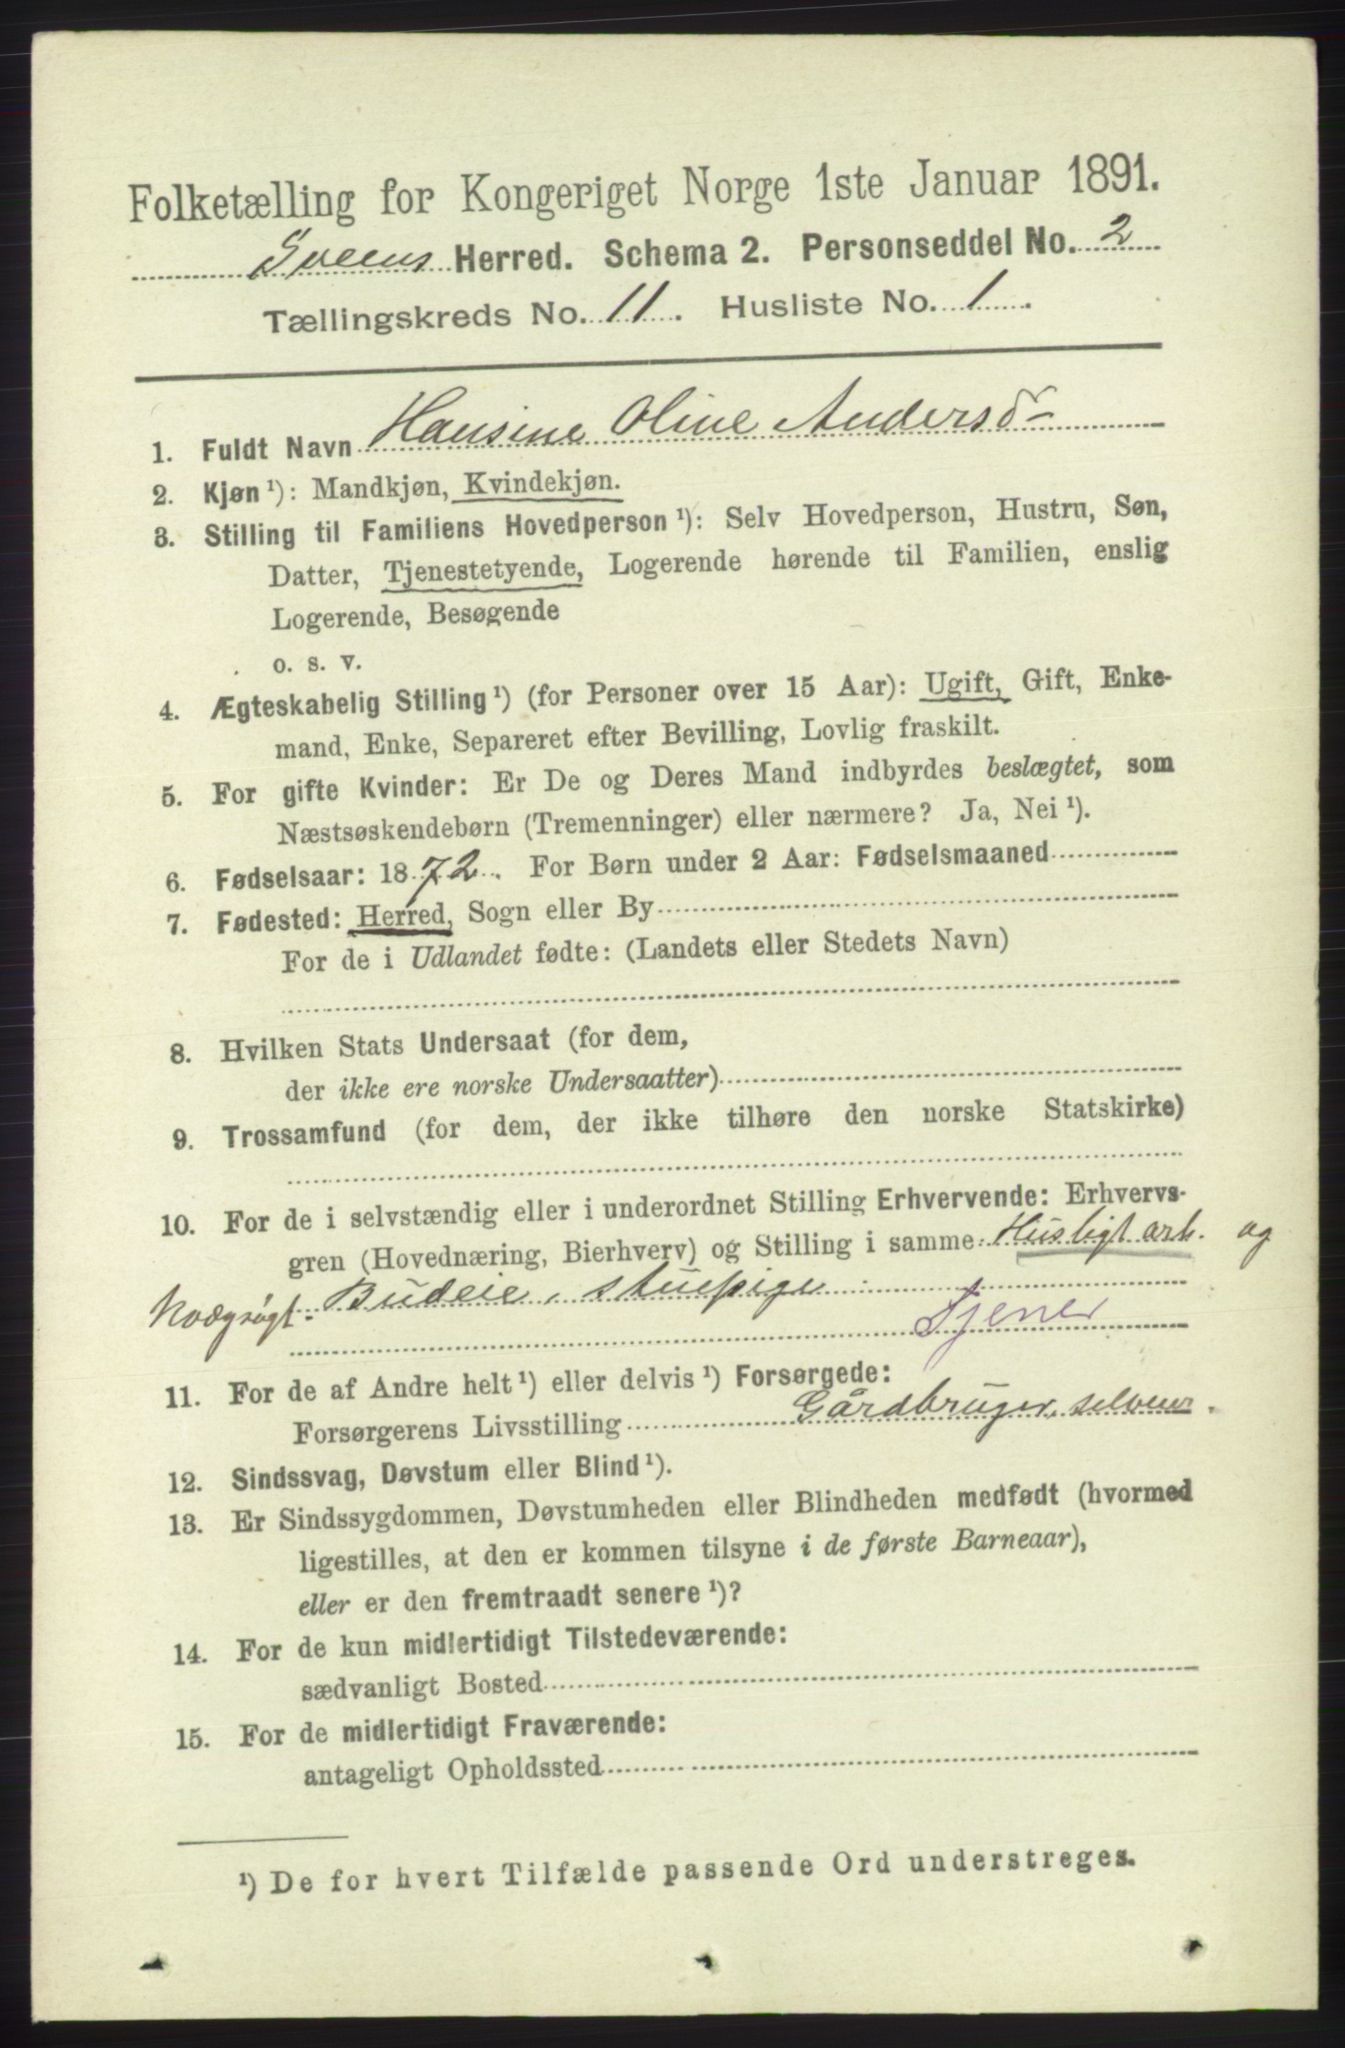 Folketælling for Kongeriget Norge 1ste Januar 1891.
Sveens Herred. Schema 2. Personseddel No. 2
Tællingskreds No. 11. Husliste No. 1.
1. Fuldt Navn Hansine Oline Andersdr
2. Kjøn ¹): Mandkjøn, Kvindekjøn.
3. Stilling til Familiens Hovedperson ¹): Selv Hovedperson, Hustru, Søn,
Datter, Tjenestetyende, Logerende hørende til Familien, enslig
Logerende, Besøgende
o. s. v.
4. Ægteskabelig Stilling ¹) (for Personer over 15 Aar): Ugift, Gift, Enke-
mand, Enke, Separeret efter Bevilling, Lovlig fraskilt.
5. For gifte Kvinder: Er De og Deres Mand indbyrdes beslægtet, som
Næstsøskendebørn (Tremenninger) eller nærmere? Ja, Nei ¹).
6. Fødselsaar: 1872. For Børn under 2 Aar: Fødselsmaaned
7. Fødested: Herred, Sogn eller By
For de i Udlandet fødte: (Landets eller Stedets Navn)
8. Hvilken Stats Undersaat (for dem,
der ikke ere norske Undersaatter)
9. Trossamfund (for dem, der ikke tilhøre den norske Statskirke)
10. For de i selvstændig eller i underordnet Stilling Erhvervende: Erhvervs-
gren (Hovednæring, Bierhverv) og Stilling i samme Husligt arb. og
Kvægrøgt. Budeie, stuepige
Tjener
11. For de af Andre helt ¹) eller delvis ¹) Forsørgede:
Forsørgerens Livsstilling Gårdbruger, selveier.
12. Sindssvag, Døvstum eller Blind ¹).
13. Er Sindssygdommen, Døvstumheden eller Blindheden medfødt (hvormed
ligestilles, at den er kommen tilsyne i de første Barneaar),
eller er den fremtraadt senere ¹)?
14. For de kun midlertidigt Tilstedeværende:
sædvanligt Bosted
15. For de midlertidigt Fraværende:
antageligt Opholdssted
¹) De for hvert Tilfælde passende Ord understreges.